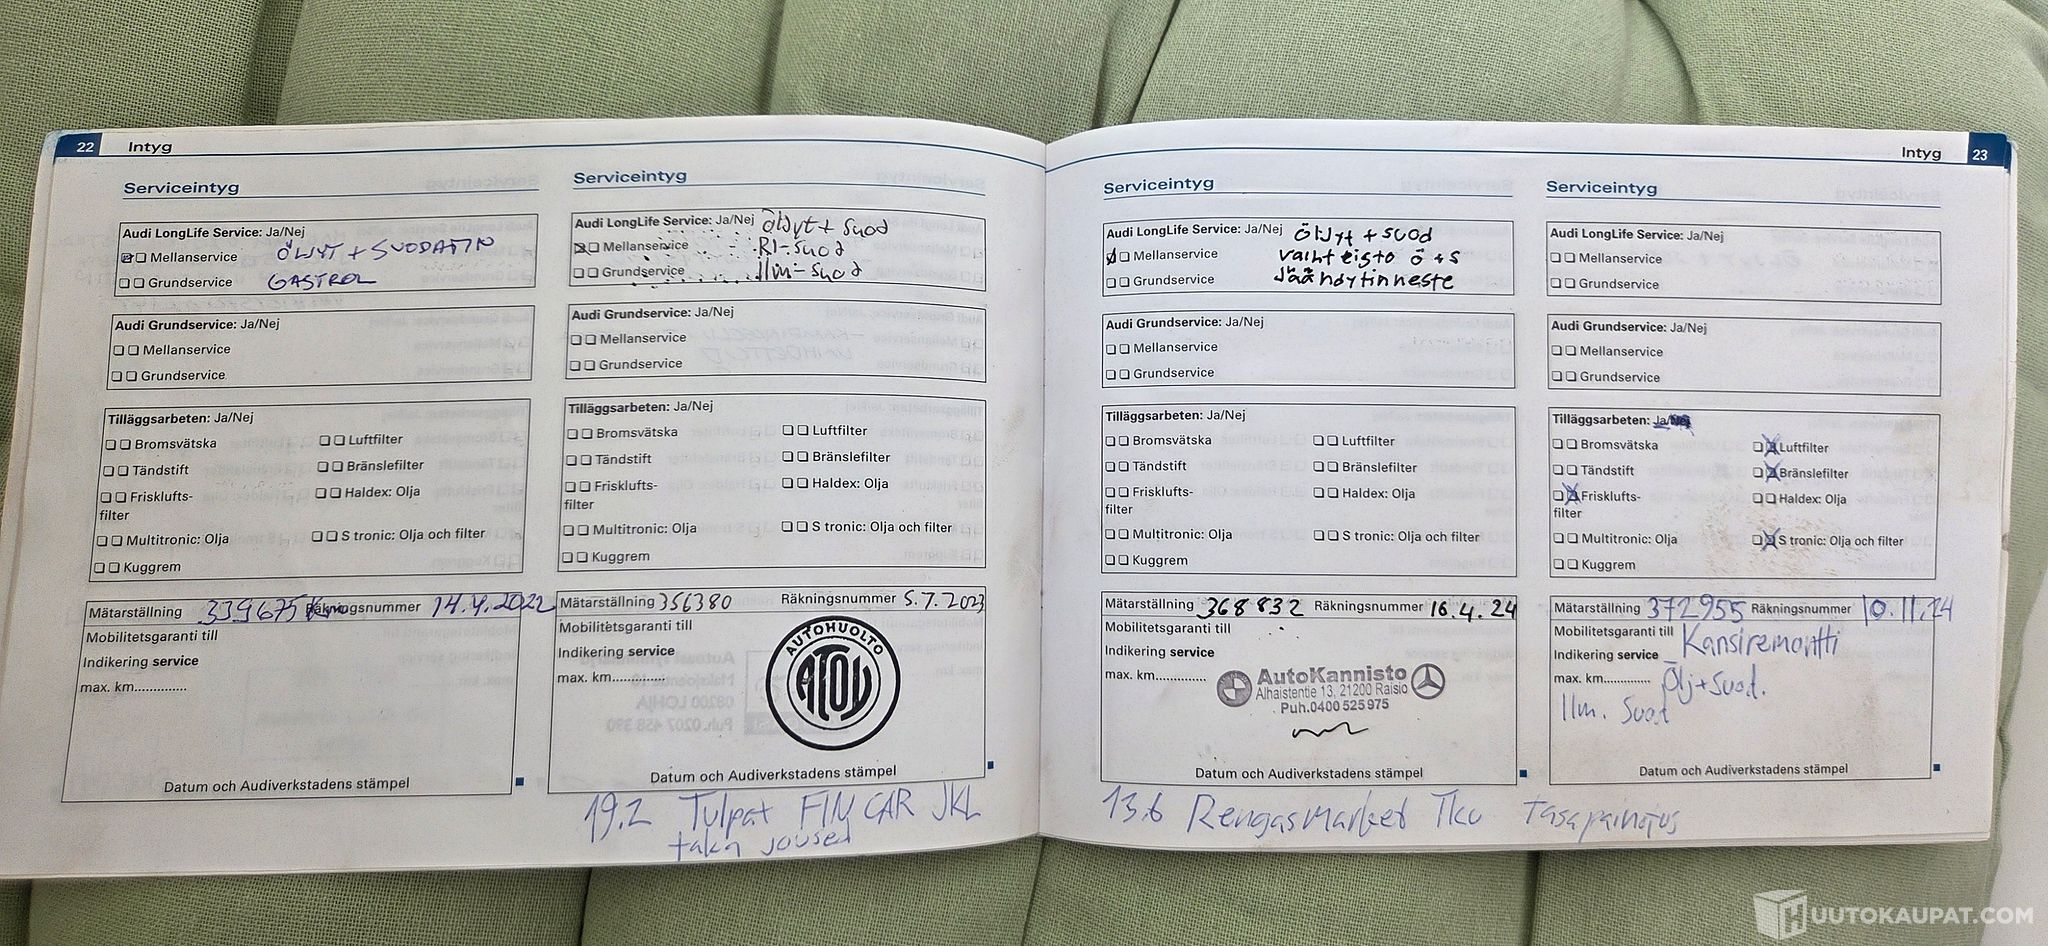 22 Intyg
Serviceintyg
Audi LongLife Service: Ja/Nej
Mellanservice ÖLJYT + SUODATIN
Grundservice CASTROL
Audi Grundservice: Ja/Nej
Mellanservice
Grundservice
Tilläggsarbeten: Ja/Nej
Bromsvätska Luftfilter
Tändstift Bränslefilter
Frisklufts- Haldex: Olja
filter
Multitronic: Olja S tronic: Olja och filter
Kuggrem
Mätarställning 339675 km Räkningsnummer 14.4.2022
Mobilitetsgaranti till
Indikering service
max. km..............
Datum och Audiverkstadens stämpel
Serviceintyg
Audi LongLife Service: Ja/Nej öljyt + suod
Mellanservice RI-suod
Grundservice ilm-suod
Audi Grundservice: Ja/Nej
Mellanservice
Grundservice
Tilläggsarbeten: Ja/Nej
Bromsvätska Luftfilter
Tändstift Bränslefilter
Frisklufts- Haldex: Olja
filter
Multitronic: Olja S tronic: Olja och filter
Kuggrem
Mätarställning 356380 Räkningsnummer 5.7.2023
Mobilitetsgaranti till
Indikering service
max. km..............
AUTOHUOLTO
ATOY
Datum och Audiverkstadens stämpel
19.2 Tulpat FIN CAR JKL
taka jouset
Intyg 23
Serviceintyg
Audi LongLife Service: Ja/Nej öljyt + suod
Mellanservice vaihteisto ö + s
Grundservice Jäähdytinneste
Audi Grundservice: Ja/Nej
Mellanservice
Grundservice
Tilläggsarbeten: Ja/Nej
Bromsvätska Luftfilter
Tändstift Bränslefilter
Frisklufts- Haldex: Olja
filter
Multitronic: Olja S tronic: Olja och filter
Kuggrem
Mätarställning 368832 Räkningsnummer 16.4.24
Mobilitetsgaranti till
Indikering service
max. km..............
AutoKannisto
Alhaistentie 13, 21200 Raisio
Puh.0400 525975
Datum och Audiverkstadens stämpel
13.6 Rengasmarket Tku Tasapainotus
Serviceintyg
Audi LongLife Service: Ja/Nej
Mellanservice
Grundservice
Audi Grundservice: Ja/Nej
Mellanservice
Grundservice
Tilläggsarbeten: Ja/Nej
Bromsvätska Luftfilter
Tändstift Bränslefilter
Frisklufts- Haldex: Olja
filter
Multitronic: Olja S tronic: Olja och filter
Kuggrem
Mätarställning 372955 Räkningsnummer 10.11.24
Mobilitetsgaranti till Kansiremontti
Indikering service
max. km.............. Ölj+suod.
Ilm. Suod
Datum och Audiverkstadens stämpel
HUUTOKAUPAT.COM